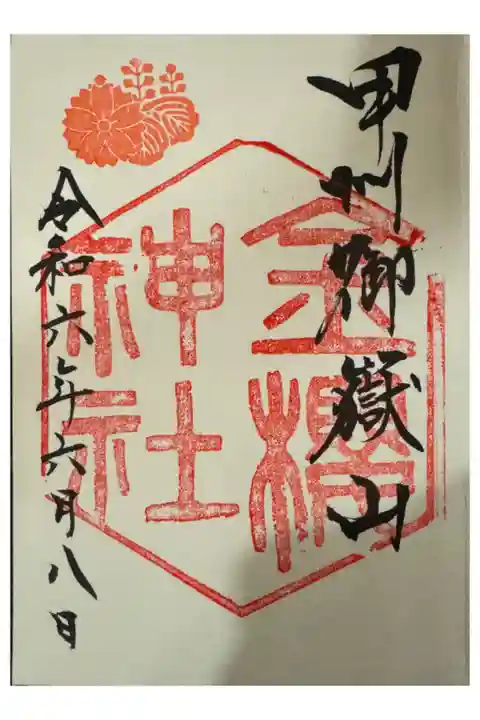 甲州御嶽山
金櫻
神社
令和六年六月八日